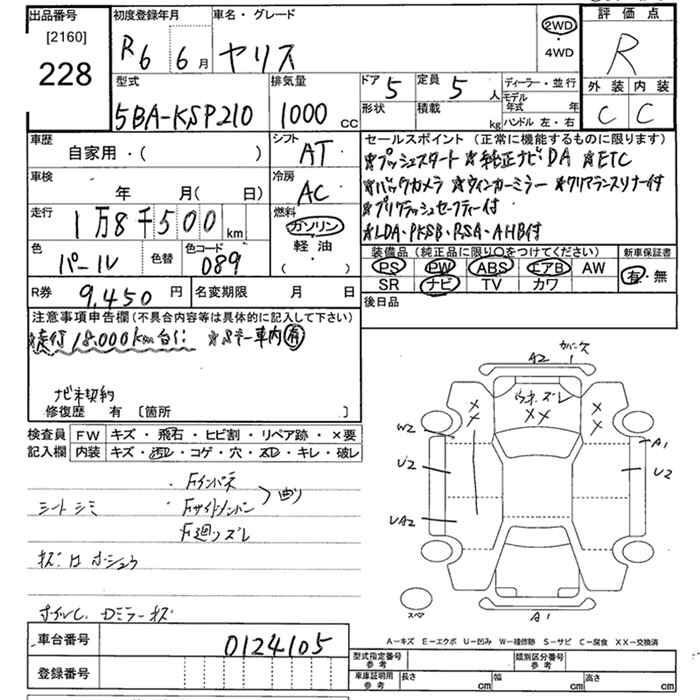 出品番号
[2160]
228
初度登録年月
R6 6月
車名・グレード
ヤリス
2WD
・
4WD
評価点
R
外装 内装
C C
型式
5BA-KSP210
排気量
1000 CC
ドア 5
定員 5 人
形状
積載 kg
ディーラー・並行
モデル年式 年
ハンドル 左・右
車歴
自家用・( )
シフト
AT
車検
年 月( 日)
冷房
AC
走行
1万8千500 km
燃料
ガソリン
軽油
・( )
色
パール
色替
色コード
089
R券 9,450 円
名変期限 月 日
セールスポイント(正常に機能するものに限ります)
★プッシュスタート ★純正ナビDA ★ETC
★バックカメラ ★ウィンカーミラー ★クリアランスソナー付
★プリクラッシュセーフティー付
★LDA・PKSB・RSA・AHB付
装備品(純正品に限り〇をつけてください)
PS PW ABS エアB AW
SR ナビ TV カワ
新車保証書
有・無
後日品
注意事項申告欄(不具合内容等は具体的に記入して下さい)
走行18,000km台
車内有
ナビ未契約
修復歴 有 [箇所 ]
検査員記入欄
FW キズ・飛石・ヒビ割・リペア跡・×要
内装 キズ・汚レ・コゲ・穴・スレ・キレ・破レ
・Fインパネ
シートシミ ・Fサイドメンバー 曲り
F廻リズレ
Dミラーキズ
車台番号 0124105
登録番号
A2 1
ウキズレ
XX
XX
XX
W2
U2
UA2
A1
U2
A1
スペア
A−キズ E−エクボ U−凹み W−補修跡 S−サビ C−腐食 XX−交換済
型式指定番号 参考
類別区分番号 参考
車庫証明用 参考
長さ cm
幅 cm
高さ cm